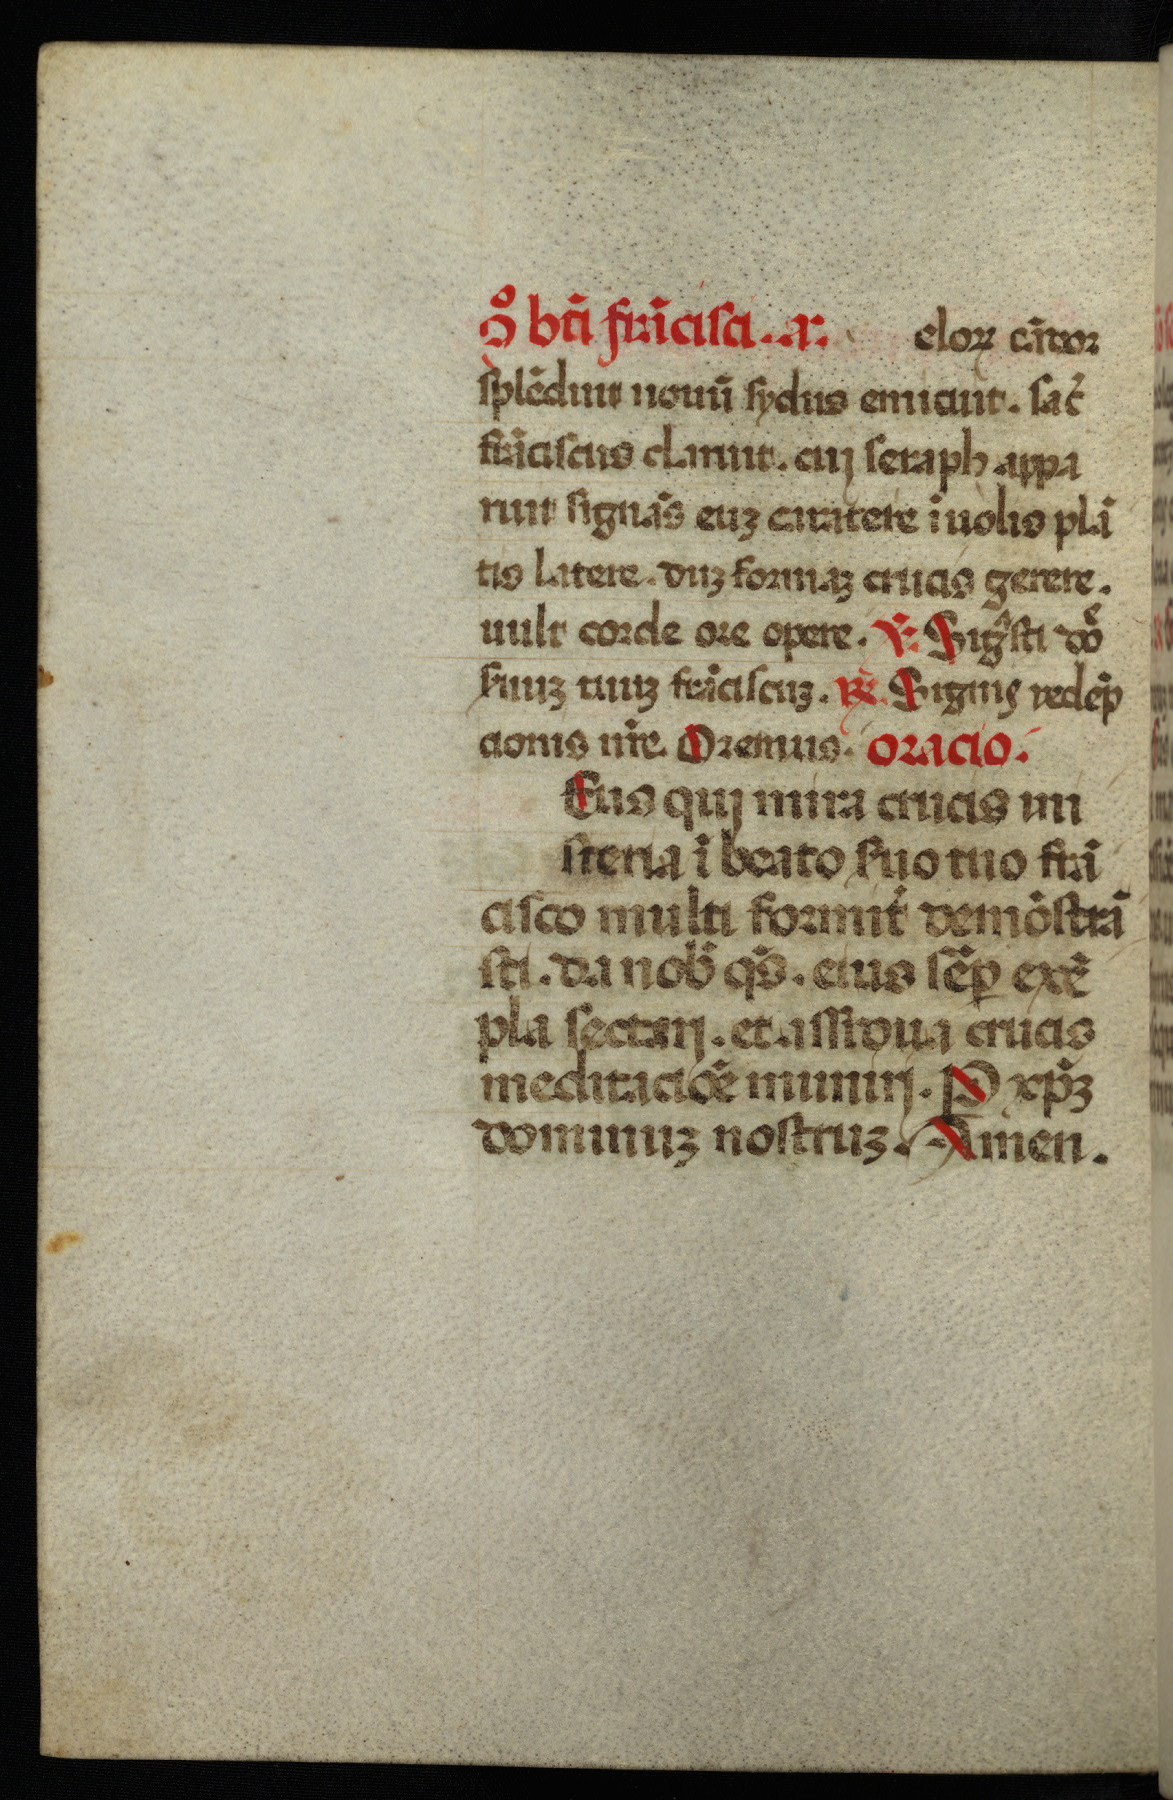 Sͦ bti frācisci . a .   eloꝝ cādor
splēduit nouū sydus emicuit . sac̄
frāciscus claruit . cuj seraph appa
ruit signās euʒ caratere ī uolis plā
tis latere . duʒ formaʒ crucis gerere .
uult corde ore opere . ℣ . Sigͣsti dōe
suuʒ tuuʒ frāciscuʒ . ℟ . Signis redēp
cionis nr̄e . Oremus . oracio .
Eus quj mira crucis mi
steria ī beato suo tuo frā
cisco multi formit̄ demōstra
sti . da nob̄ qs̄ . eius sēp exē
pla sectarj . et assidua crucis
meditaciōe munirj . P xp̄ʒ
dominuʒ nostruʒ . Amen .